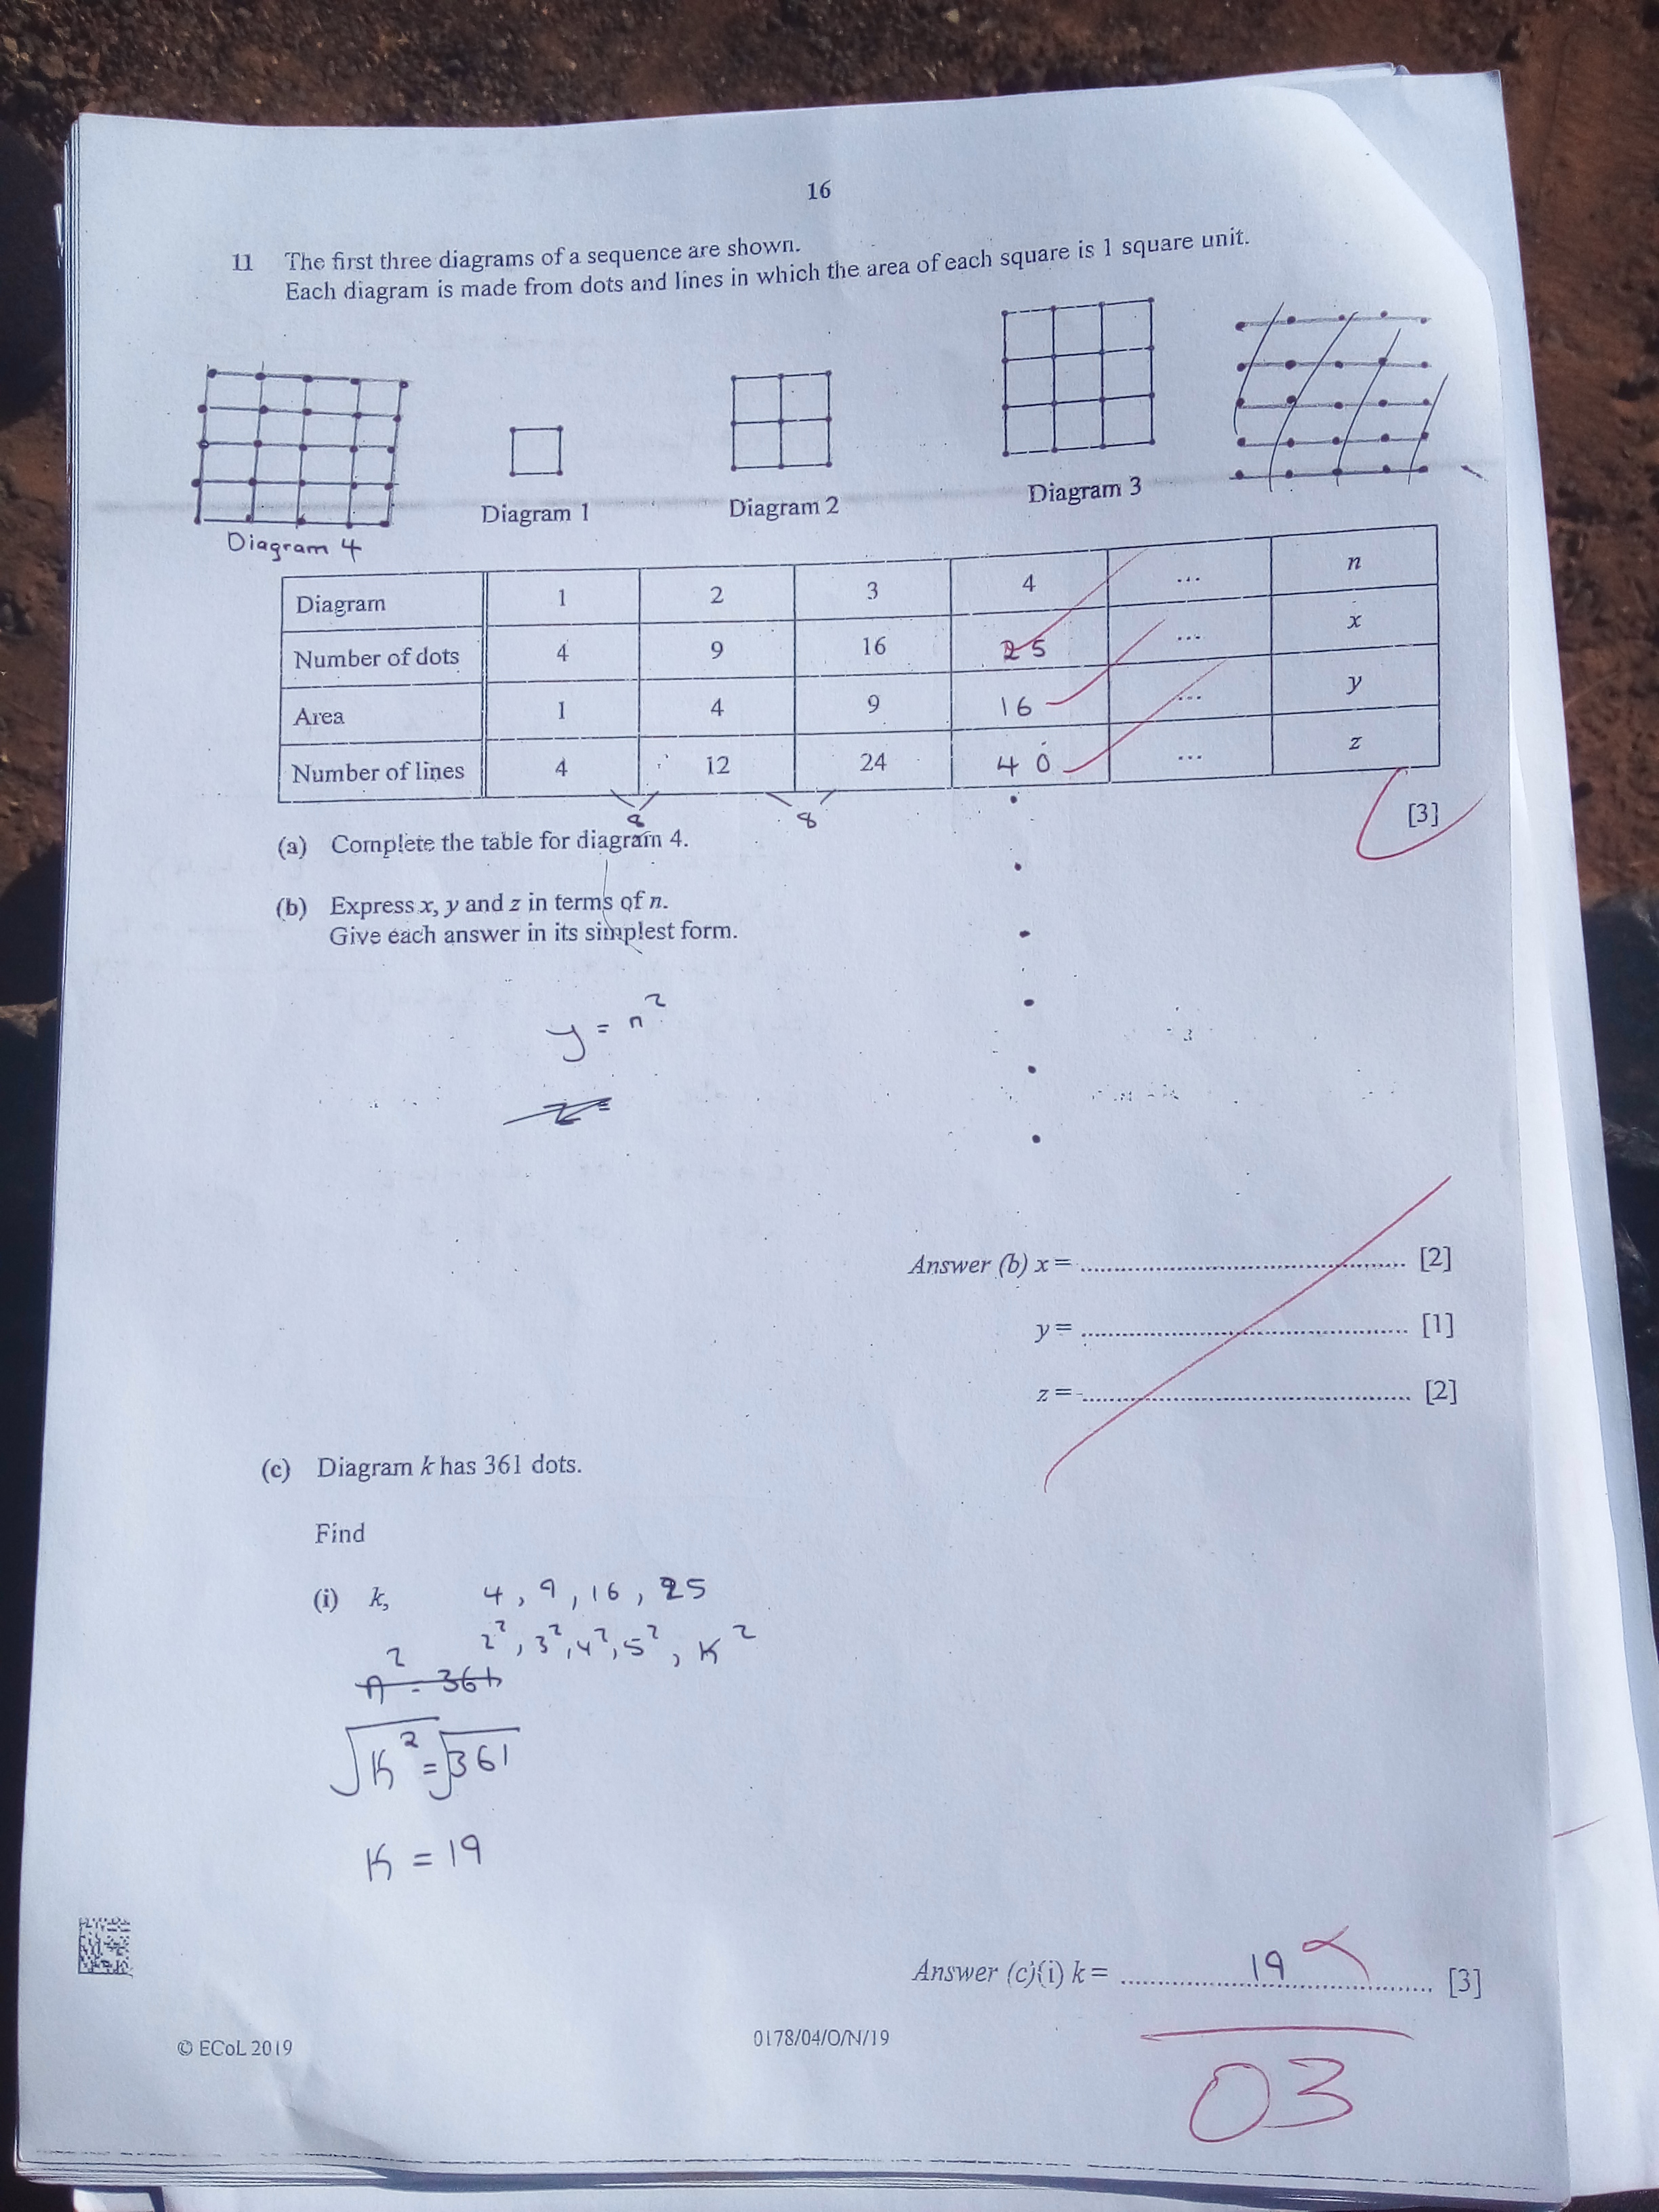 16
11 The first three diagrams of a sequence are shown.
Each diagram is made from dots and lines in which the area of each square is 1 square unit.
Diagram 4
Diagram 1
Diagram 2
Diagram 3
Diagram 1 2 3 4 ... n
Number of dots 4 9 16 25 ... x
Area 1 4 9 16 ... y
Number of lines 4 12 24 40 ... z
8 8
[3]
(a) Complete the table for diagram 4.
(b) Express x, y and z in terms of n.
Give each answer in its simplest form.
y = n²
z =
Answer (b) x = .......... [2]
y = .......... [1]
z = .......... [2]
(c) Diagram k has 361 dots.
Find
(i) k, 4, 9, 16, 25
2², 3², 4², 5², K²
n² = 361
√K² = √361
K = 19
Answer (c)(i) k = 19 [3]
03
© ECoL 2019
0178/04/O/N/19